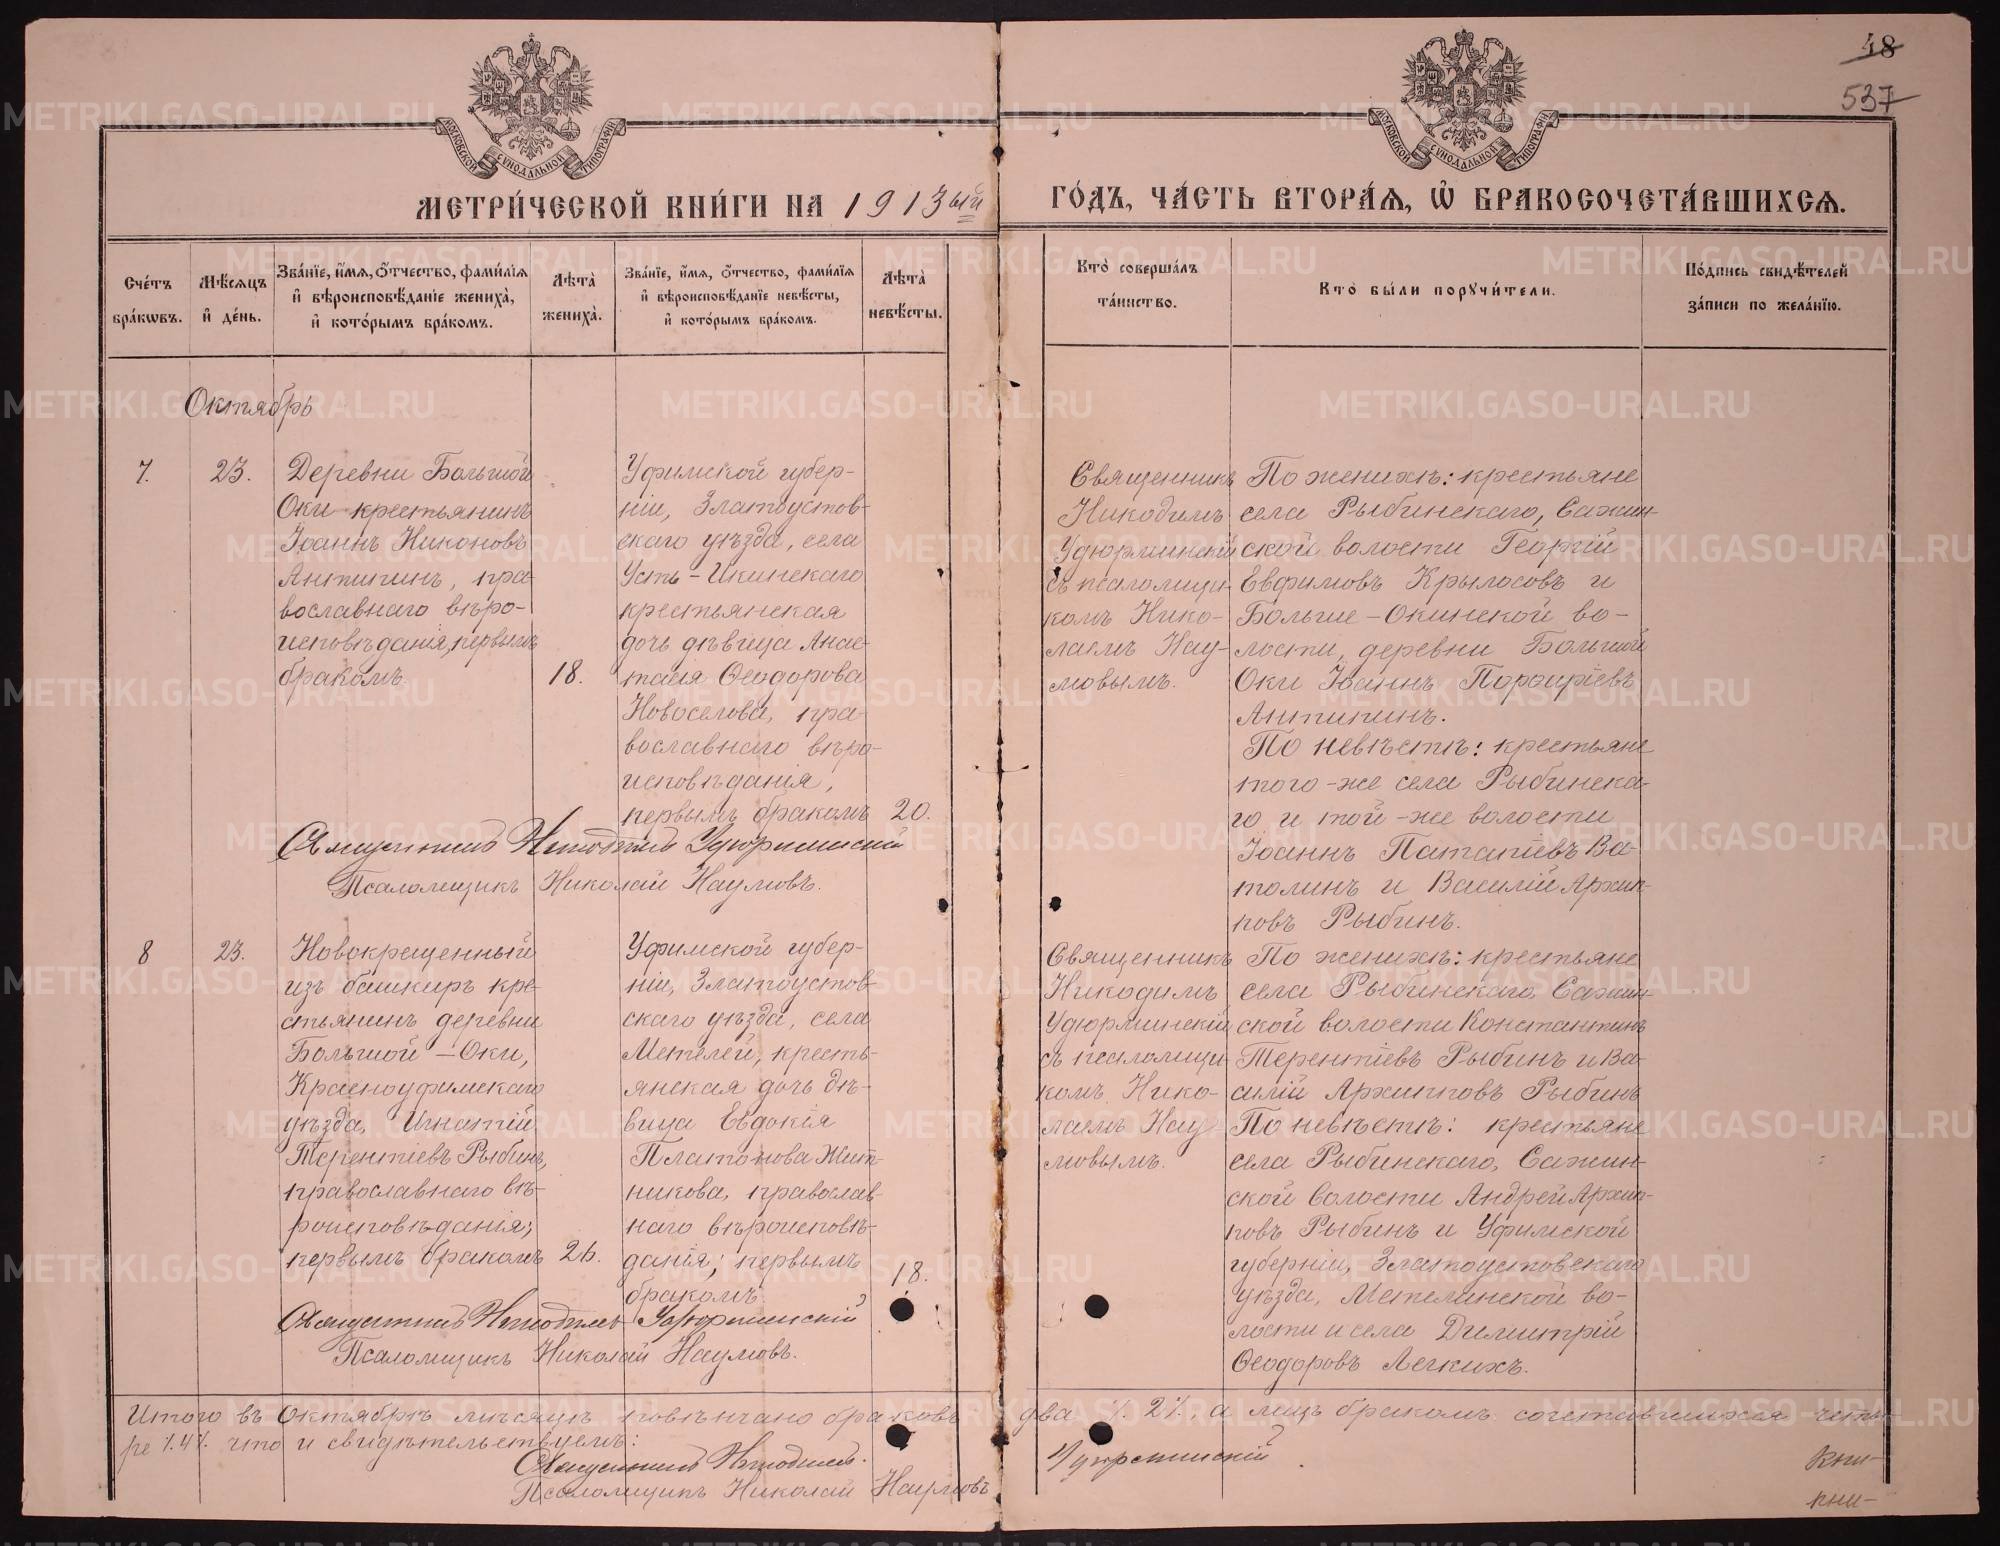 48
537
МОСКОВСКОЙ СѴНОДАЛЬНОЙ ТИПОГРАФІИ
МОСКОВСКОЙ СѴНОДАЛЬНОЙ ТИПОГРАФІИ
МЕТРИ́ЧЕСКОЙ КНИ́ГИ НА 1913ый ГО́ДЪ, ЧА́СТЬ ВТОРА́Ѧ, Ѽ БРАКОСОЧЕТА́ВШИХСѦ.
Сче́тъ
бра́кѡвъ.
Мѣ́сѧцъ
и҆ де́нь.
Зва́нїе, и҆́мѧ, ѻ҆́тчество, фами́лїѧ
и҆ вѣроисповѣ́данїе жениха̀,
и҆ кото́рымъ бра́комъ.
Лѣ́та̀
жениха̀.
Зва́нїе, и҆́мѧ, ѻ҆́тчество, фами́лїѧ
и҆ вѣроисповѣ́данїе невѣ́сты,
и҆ кото́рымъ бра́комъ.
Лѣ́та̀
невѣ́сты.
Кто̀ соверша́лъ
та́инство.
Кто̀ бы́ли порꙋчи́тели.
По́дпись свидѣ́телей
за́писи по жела́нїю.
Октябрь
7.
23.
Деревни Большой
Оки крестьянинъ
Іоаннъ Никоновъ
Антипинъ, пра-
вославнаго вѣро-
исповѣданія, первымъ
бракомъ.
18.
Уфимской губер-
ніи, Златоустов-
скаго уѣзда, села
Усть-Икинскаго
крестьянская
дочь дѣвица Анас-
тасія Ѳеодорова
Новоселова, пра-
вославнаго вѣро-
исповѣданія,
первымъ бракомъ
20.
Священникъ
Никодимъ
Удюрминскій
съ псаломщи-
комъ Нико-
лаемъ Нау-
мовымъ.
По женихѣ: крестьяне
села Рыбинскаго, Сажин-
ской волости Георгій
Евфимовъ Крылосовъ и
Больше-Окинской во-
лости, деревни Большой
Оки Іоаннъ Порфиріевъ
Антипинъ.
По невѣстѣ: крестьяне
того-же села Рыбинска-
го и той-же волости
Іоаннъ Патапіевъ Ва-
толинъ и Василій Архип-
повъ Рыбинъ.
Священникъ Никодимъ Удюрминскій
Псаломщикъ Николай Наумовъ.
8
23.
Новокрещенный
изъ башкиръ кре-
стьянинъ деревни
Большой-Оки,
Красноуфимскаго
уѣзда, Игнатій
Терентіевъ Рыбинъ,
православнаго вѣ-
роисповѣданія;
первымъ бракомъ
26.
Уфимской губер-
ніи, Златоустов-
скаго уѣзда, села
Метелей, кресть-
янская дочь дѣ-
вица Евдокія
Платонова Жит-
никова, православ-
наго вѣроисповѣ-
данія; первымъ
бракомъ.
18.
Священникъ
Никодимъ
Удюрминскій
съ псаломщи-
комъ Нико-
лаемъ Нау
мовымъ.
По женихѣ: крестьяне
села Рыбинскаго, Сажин-
ской волости Константинъ
Терентіевъ Рыбинъ и Ва-
силій Архипповъ Рыбинъ
По невѣстѣ: крестьяне
села Рыбинскаго, Сажин-
ской волости Андрей Архип-
повъ Рыбинъ и Уфимской
губерніи, Златоустовскаго
уѣзда, Метелинской во-
лости и села Димитрій
Ѳеодоровъ Легкихъ.
Священникъ Никодимъ Удюрминскій
Псаломщикъ Николай Наумовъ.
Итого въ Октябрѣ мѣсяцѣ повѣнчано браковъ два ∕. 2∕., а лицъ бракомъ сочетавшихся четы-
ре ∕. 4∕. что и свидѣтельствуемъ:
Священникъ Никодимъ Удюрминскій
Псаломщикъ Николай Наумовъ
кни-
кни-
METRIKI.GASO-URAL.RU